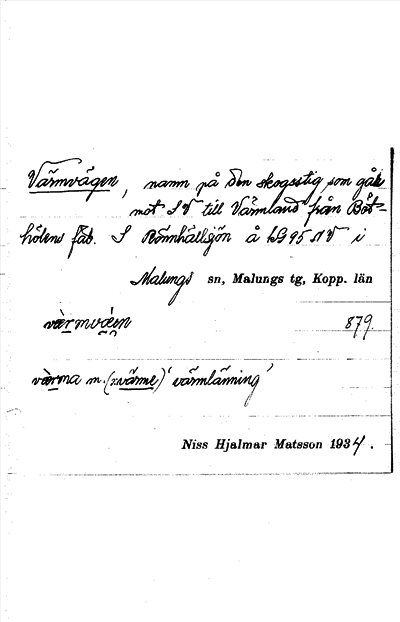 Värmvägen, namn på den skogsstig som går
mot SV till Värmland från Böt-
hölens fäb. S Rönnhällsjön å bG 95 NV i
Malungs sn, Malungs tg, Kopp. län
879.
värma m. (xvärme) 'värmlänning'
Niss Hjalmar Matsson 1934.